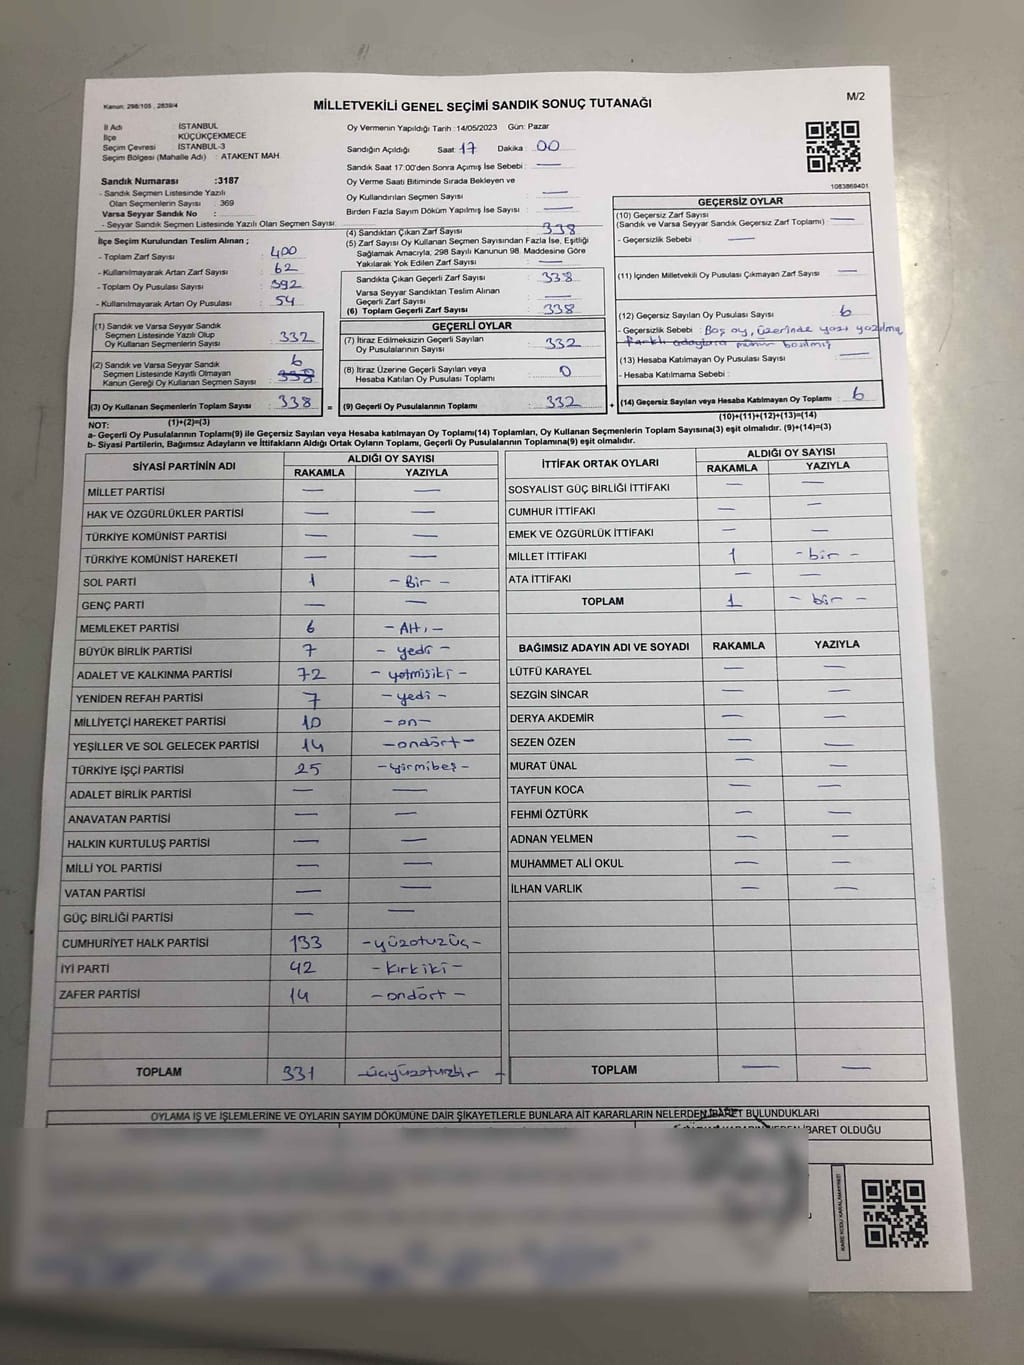 Kanun: 298/105 , 2839/4
MİLLETVEKİLİ GENEL SEÇİMİ SANDIK SONUÇ TUTANAĞI
M/2
İl Adı : İSTANBUL
İlçe : KÜÇÜKÇEKMECE
Seçim Çevresi : İSTANBUL-3
Seçim Bölgesi (Mahalle Adı) : ATAKENT MAH
Sandık Numarası :3187
- Sandık Seçmen Listesinde Yazılı
Olan Seçmenlerin Sayısı : 369
Varsa Seyyar Sandık No :
- Seyyar Sandık Seçmen Listesinde Yazılı Olan Seçmen Sayısı:
İlçe Seçim Kurulundan Teslim Alınan ;
- Toplam Zarf Sayısı : 400
- Kullanılmayarak Artan Zarf Sayısı : 62
- Toplam Oy Pusulası : 392
- Kullanılmayarak Artan Oy Pusulası : 54
(1) Sandık ve Varsa Seyyar Sandık
Seçmen Listesinde Yazılı Olup
Oy Kullanan Seçmenlerin Sayısı : 332
(2) Sandık ve Varsa Seyyar Sandık 6
Seçmen Listesinde Kayıtlı Olmayan
Kanun Gereği Oy Kullanan Seçmen Sayısı : 338
(3) Oy Kullanan Seçmenlerin Toplam Sayısı : 338 =
Oy Vermenin Yapıldığı Tarih :14/05/2023 Gün: Pazar
Sandığın Açıldığı Saat: 17 Dakika : 00
Sandık Saat 17.00'den Sonra Açımış İse Sebebi : —
Oy Verme Saati Bitiminde Sırada Bekleyen ve
Oy Kullandırılan Seçmen Sayısı : —
Birden Fazla Sayım Döküm Yapılmış İse Sayısı : —
(4) Sandıktan Çıkan Zarf Sayısı : 338
(5) Zarf Sayısı Oy Kullanan Seçmen Sayısından Fazla İse, Eşitliği
Sağlamak Amacıyla, 298 Sayılı Kanunun 98. Maddesine Göre
Yakılarak Yok Edilen Zarf Sayısı : —
Sandıkta Çıkan Geçerli Zarf Sayısı : 338
Varsa Seyyar Sandıktan Teslim Alınan
Geçerli Zarf Sayısı : —
(6) Toplam Geçerli Zarf Sayısı : 338
GEÇERLİ OYLAR
(7) İtiraz Edilmeksizin Geçerli Sayılan
Oy Pusulalarının Sayısı : 332
(8) İtiraz Üzerine Geçerli Sayılan veya
Hesaba Katılan Oy Pusulası Toplamı : 0
(9) Geçerli Oy Pusulalarının Toplamı : 332 +
1083869401
GEÇERSİZ OYLAR
(10) Geçersiz Zarf Sayısı
(Sandık ve Varsa Seyyar Sandık Geçersiz Zarf Toplamı) : —
- Geçersizlik Sebebi : —
(11) İçinden Milletvekili Oy Pusulası Çıkmayan Zarf Sayısı : —
(12) Geçersiz Sayılan Oy Pusulası Sayısı : 6
- Geçersizlik Sebebi : Boş oy, üzerinde yazı yazılmış
Farklı adaylara mühür basılmış
(13) Hesaba Katılmayan Oy Pusulası Sayısı : —
- Hesaba Katılmama Sebebi :
(14) Geçersiz Sayılan veya Hesaba Katılmayan Oy Toplamı : 6
NOT: (1)+(2)=(3)
(10)+(11)+(12)+(13)=(14)
a- Geçerli Oy Pusulalarının Toplamı(9) ile Geçersiz Sayılan veya Hesaba katılmayan Oy Toplamı(14) Toplamları, Oy Kullanan Seçmenlerin Toplam Sayısına(3) eşit olmalıdır. (9)+(14)=(3)
b- Siyasi Partilerin, Bağımsız Adayların ve İttifakların Aldığı Ortak Oyların Toplamı, Geçerli Oy Pusulalarının Toplamına(9) eşit olmalıdır.
SİYASİ PARTİNİN ADI ALDIĞI OY SAYISI
RAKAMLA YAZIYLA
MİLLET PARTİSİ — —
HAK VE ÖZGÜRLÜKLER PARTİSİ — —
TÜRKİYE KOMÜNİST PARTİSİ — —
TÜRKİYE KOMÜNİST HAREKETİ — —
SOL PARTİ 1 - Bir -
GENÇ PARTİ — —
MEMLEKET PARTİSİ 6 - Altı -
BÜYÜK BİRLİK PARTİSİ 7 - yedi -
ADALET VE KALKINMA PARTİSİ 72 - yetmişiki -
YENİDEN REFAH PARTİSİ 7 - yedi -
MİLLİYETÇİ HAREKET PARTİSİ 10 - on -
YEŞİLLER VE SOL GELECEK PARTİSİ 14 - ondört -
TÜRKİYE İŞÇİ PARTİSİ 25 - yirmibeş -
ADALET BİRLİK PARTİSİ — —
ANAVATAN PARTİSİ — —
HALKIN KURTULUŞ PARTİSİ — —
MİLLİ YOL PARTİSİ — —
VATAN PARTİSİ — —
GÜÇ BİRLİĞİ PARTİSİ — —
CUMHURİYET HALK PARTİSİ 133 - yüzotuzüç -
İYİ PARTİ 42 - kırkiki -
ZAFER PARTİSİ 14 - ondört -
TOPLAM 331 - üçyüzotuzbir -
İTTİFAK ORTAK OYLARI ALDIĞI OY SAYISI
RAKAMLA YAZIYLA
SOSYALİST GÜÇ BİRLİĞİ İTTİFAKI — —
CUMHUR İTTİFAKI — —
EMEK VE ÖZGÜRLÜK İTTİFAKI — —
MİLLET İTTİFAKI 1 - bir -
ATA İTTİFAKI — —
TOPLAM 1 - bir -
BAĞIMSIZ ADAYIN ADI VE SOYADI RAKAMLA YAZIYLA
LÜTFÜ KARAYEL — —
SEZGİN SİNCAR — —
DERYA AKDEMİR — —
SEZEN ÖZEN — —
MURAT ÜNAL — —
TAYFUN KOCA — —
FEHMİ ÖZTÜRK — —
ADNAN YELMEN — —
MUHAMMET ALİ OKUL — —
İLHAN VARLIK — —
TOPLAM — —
OYLAMA İŞ VE İŞLEMLERİNE VE OYLARIN SAYIM DÖKÜMÜNE DAİR ŞİKAYETLERLE BUNLARA AİT KARARLARIN NELERDEN İBARET BULUNDUKLARI
İBARET OLDUĞU